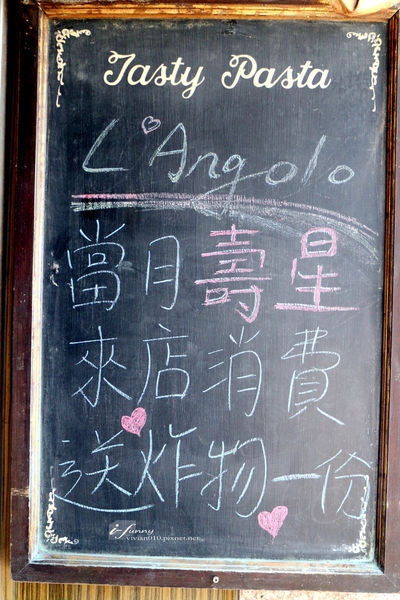 Tasty Pasta
L'Angolo
當月壽星
來店消費
送炸物一份
i-funny
vivian010.pixnet.net